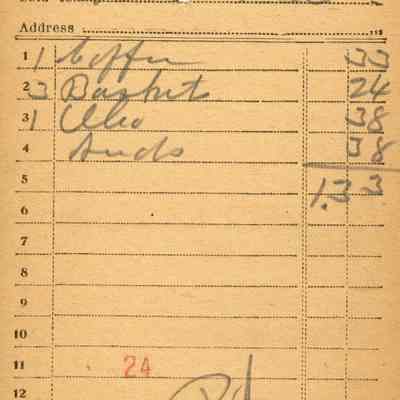 Address
1 1 Coffee 33
2 3 Baskets 24
3 1 Oleo 38
4 38
5 1.33
6
7
8
9
10
11 24
12 Pd